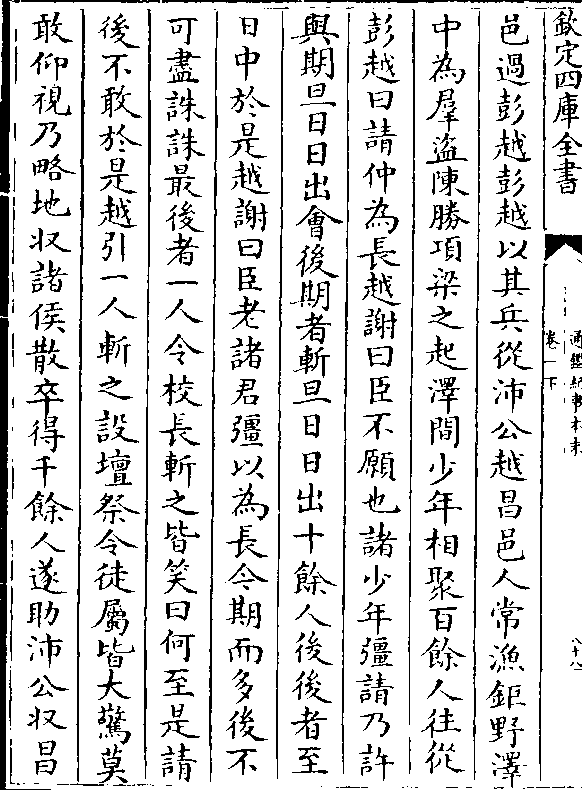 欽定四庫全書
通鑑紀事本末
卷一下
六十八
邑過彭越彭越以其兵從沛公越昌邑人常漁鉅野澤
中為羣盜陳勝項梁之起澤間少年相聚百餘人往從
彭越曰請仲為長越謝曰臣不願也諸少年彊請乃許
與期旦日日出會後期者斬旦日日出十餘人後後者至
日中於是越謝曰臣老諸君彊以為長今期而多後不
可盡誅誅最後者一人令校長斬之皆笑曰何至是請
後不敢於是越引一人斬之設壇祭令徒屬皆大驚莫
敢仰視乃略地収諸侯散卒得千餘人遂助沛公収昌